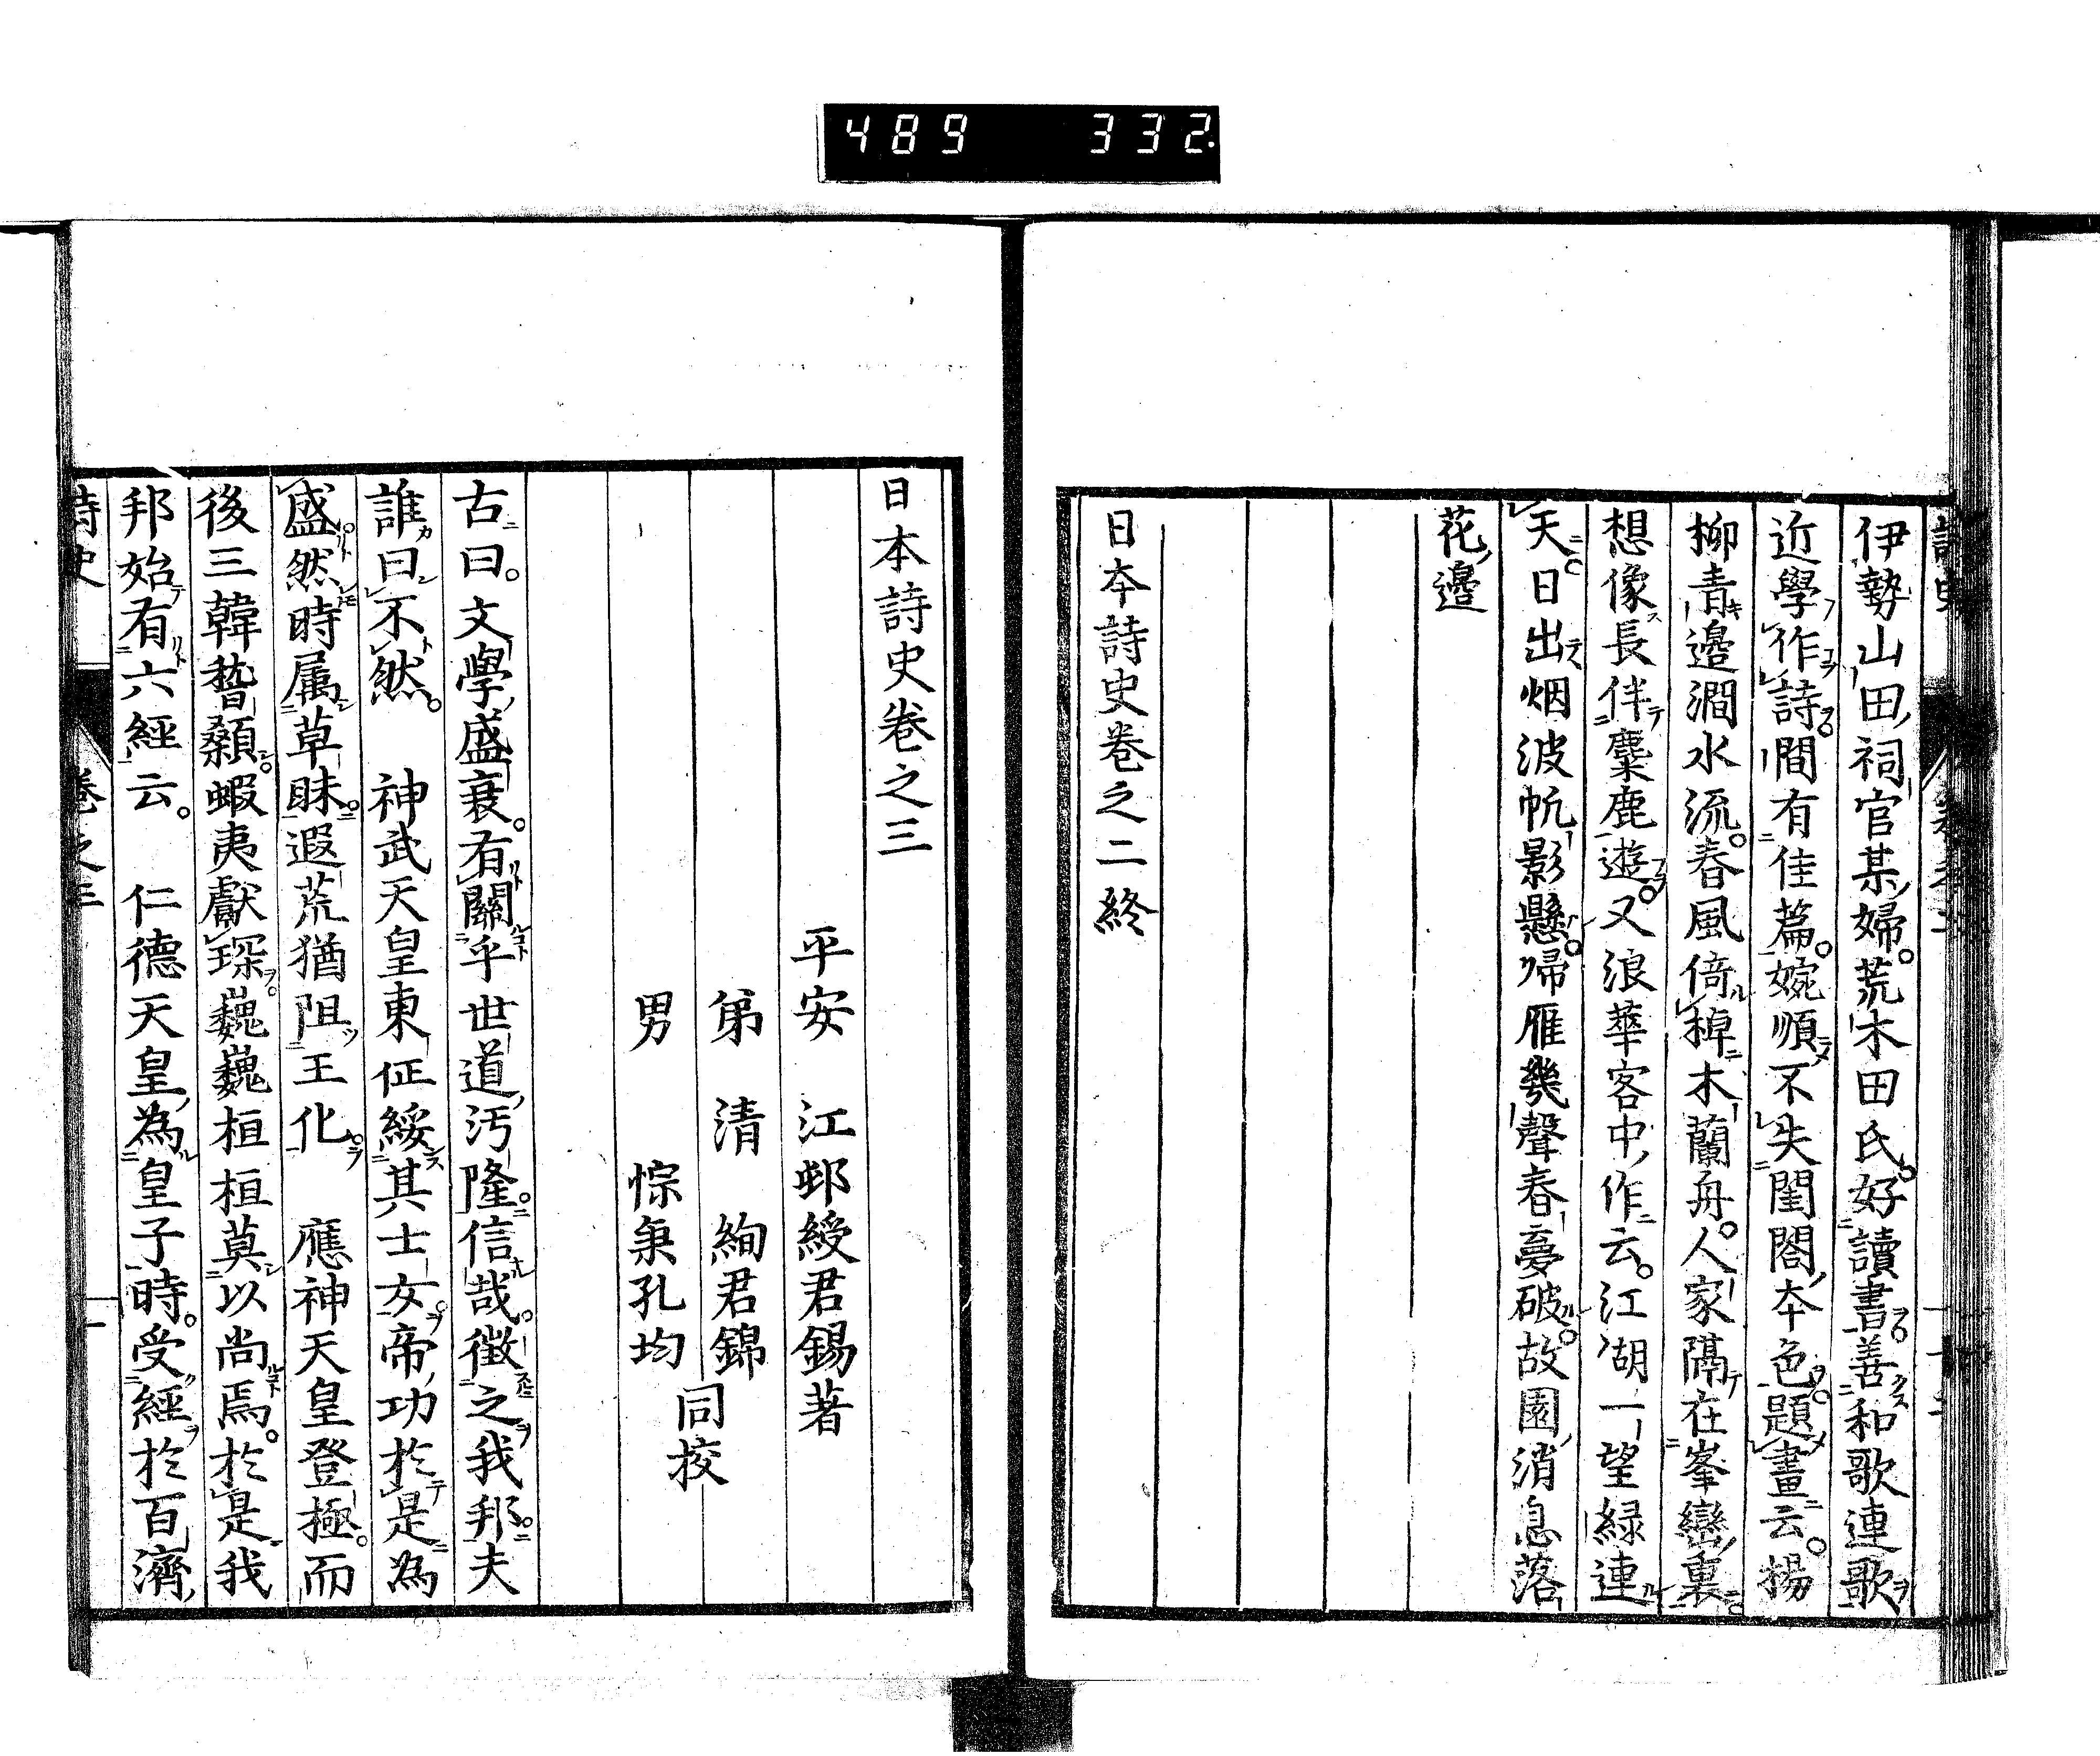 489 332
伊勢山田祠官某婦。荒木田氏。好讀書善和歌連歌
近學作詩間有佳篇。婉順不失閨閤本色。題畫云。楊
柳青邉澗水流。春風倚棹木蘭舟。人家隔在峯巒裏。
想像長伴麋鹿遊。又浪華客中作云。江湖一望緑連
天。日出烟波帆影懸。歸雁幾聲春夢破。故園消息落
花邉
日本詩史卷之二終
日本詩史卷之三
平安 江邨綬君錫著
弟 清 絢君錦
男 悰秉孔均
同校
古曰。文學盛衰。有關乎世道汚隆。信哉。徴之我邦。夫
誰曰不然。 神武天皇東征綏其士女。帝功於是為
盛然時属草昧。遐荒猶阻王化。 應神天皇登極。而
後三韓稽顙。蝦夷獻琛。巍巍桓桓莫以尚焉。於是我
邦始有六經云。 仁德天皇為皇子時。受經於百濟
詩史 卷之三 一